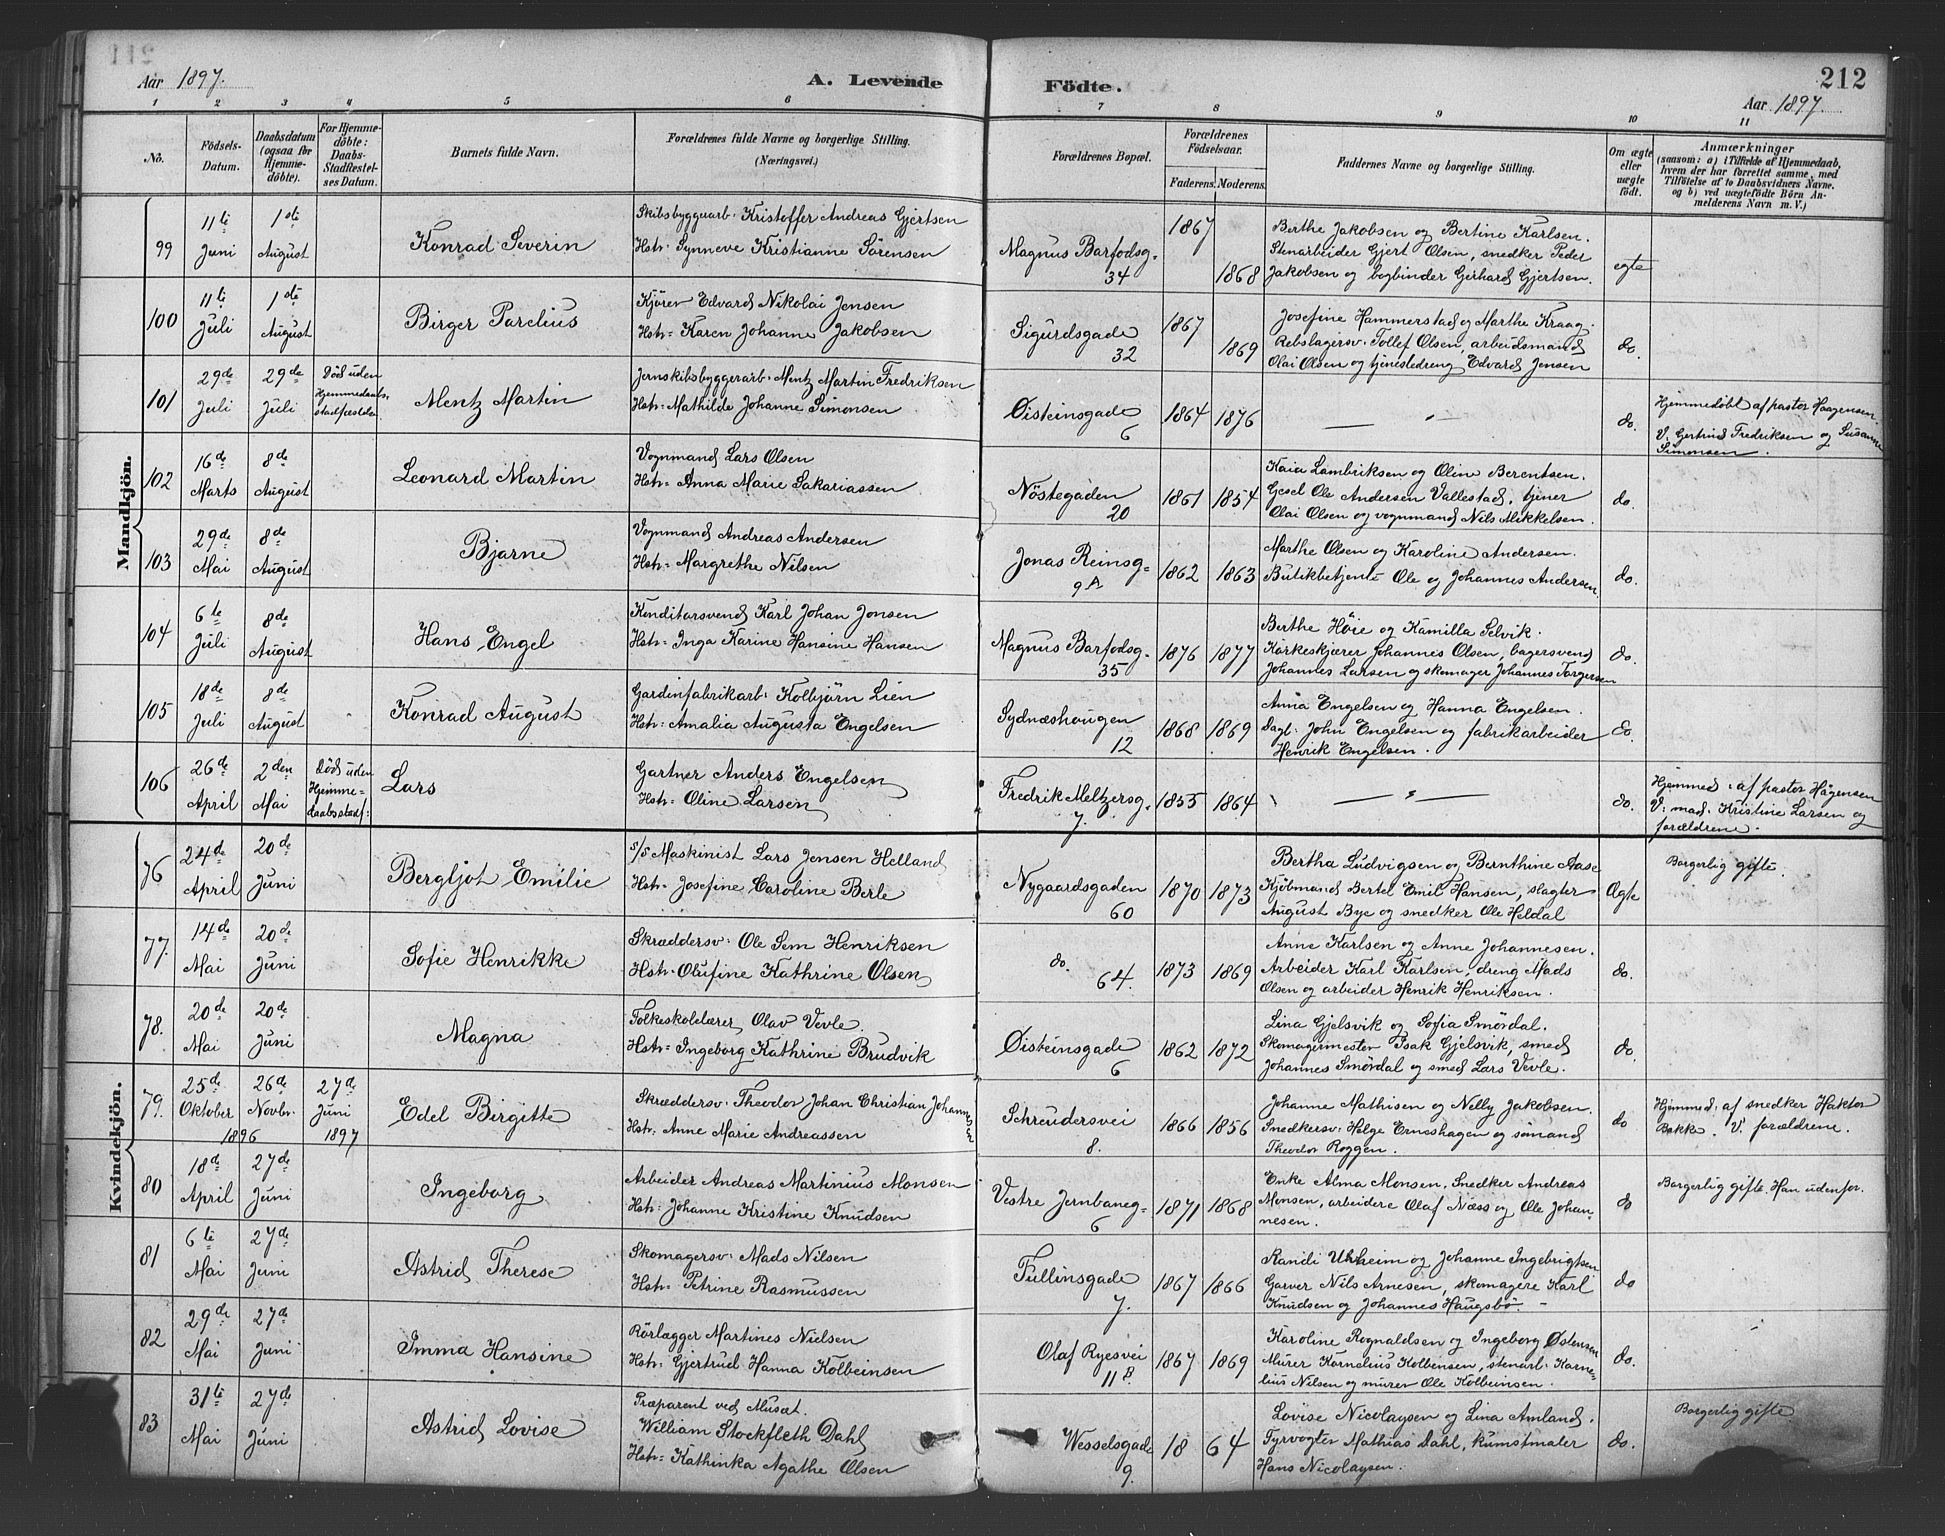 Aar 1897.
A. Levende Födte.
212
Aar 1897
1 2 3 4 5 6 7 8 9 10 11
No.
Födsels-Datum.
Daabsdatum (ogsaa for Hjemmedöbte).
For Hjemmedöbte: Daabs-Stadfæstelses Datum.
Barnets fulde Navn.
Forældrenes fulde Navne og borgerlige Stilling. (Næringsvei.)
Forældrenes Bopæl.
Forældrenes Födselsaar.
Faderens. Moderens.
Faddernes Navne og borgerlige Stilling.
Om ægte eller uægte födt.
Anmærkninger
(saasom: a) i Tilfælde af Hjemmedaab, hvem der har forrettet samme, med Tilföielse af to Daabsvidners Navne, og b) ved uægtefödte Börn Anmelderens Navn m. V.)
Mandkjön.
99
11te Juni
1ste August
Konrad Severin
Skibsbyggearb. Kristoffer Andreas Gjertsen
Hstr: Synneve Kristianne Sörensen
Magnus Barfodsg. 34
1867
1868
Berthe Jakobsen og Bertine Karlsen.
Stenarbeider Gjert Olsen, snedker Peder
Jakobsen og bogbinder Gerhard Gjertsen.
egte
100
11te Juli
1ste August
Birger Parelius
Kjörer Edvard Nikolai Jensen
Hstr: Karen Johanne Jakobsen
Sigurdsgade 32
1867
1869
Josefine Hammerstad og Marthe Kraag.
Rebslagersv. Tollef Olsen, arbeidsmand
Olai Olsen og tjenestedreng Edvard Jensen
do.
101
29de Juli
29de Juli
Död uden Hjemmedaabsstadfæstelse
Mentz Martin
Jernskibsbyggerarb. Mentz Martin Fredriksen
Hstr: Mathilde Johanne Simonsen
Øisteinsgade 6
1864
1876
— " —
do.
Hjemmedöbt af pastor Haagensen
V. Gertrud Fredriksen og Susanne
Simonsen.
102
16de Marts
8de August
Leonard Martin
Vognmand Lars Olsen
Hstr: Anna Marie Sakariassen
Nöstegaden 20
1861
1854
Kaia Lambriksen og Oline Berentsen.
Gesel Ole Andersen Vallestad, tjener
Olai Olsen og vognmand Nils Mikkelsen.
do.
103
29de Mai
8de August
Bjarne
Vognmand Andreas Andersen
Hstr: Margrethe Nilsen
Jonas Reinsg. 9A
1862
1863
Marthe Olsen og Karoline Andersen.
Butikbetjente Ole og Johannes Andersen.
do.
104
6te Juli
8de August
Hans Engel
Konditorsvend Karl Johan Jonsen
Hstr: Inga Karine Hansine Hansen
Magnus Barfodsg. 35
1876
1877
Berthe Höie og Kamilla Selvik.
Korkeskjærer Johannes Olsen, bagersvend
Johannes Larsen og skomager Johannes Torgersen
do.
105
18de Juli
8de August
Konrad August
Gardinfabrikarb. Kolbjörn Lien
Hstr: Amalia Augusta Engelsen
Sydnæshougen 12
1868
1869
Anna Engelsen og Hanna Engelsen.
Dagl: John Engelsen og fabrikarbeider
Henrik Engelsen.
do.
106
26de April
2den Mai
Död uden Hjemmedaabsstadf:
Lars
Gartner Anders Engelsen
Hstr: Oline Larsen
Fredrik Meltzersg. 7.
1855
1864
— " —
do.
Hjemmed: af pastor Hågensen
V: mad. Kristine Larsen og
forældrene.
Kvindekjön.
76
24de April
20de Juni
Bergljot Emilie
s/s Maskinist Lars Jensen Helland
Hstr: Josefine Caroline Berle
Nygaardsgaden 60
1870
1873
Bertha Ludvigsen og Bernthine Aase
Kjöbmand Bertel Emil Hansen, slagter
August Bye og snedker Ole Heldal
Ægte
Borgerlig gifte.
77.
14de Mai
20de Juni
Sofie Henrikke
Skræddersv: Ole Sem Henriksen
Hstr: Olufine Kathrine Olsen
do. 64.
1873
1869
Anne Karlsen og Anne Johannesen.
Arbeider Karl Karlsen, dreng Mads
Olsen og arbeider Henrik Henriksen.
do.
78.
20de Mai
20de Juni
Magna
Folkeskolelærer Olav Vevle
Hstr: Ingeborg Kathrine Brudvik
Øisteinsgade 6
1862
1872
Lina Gjelsvik og Sofia Smördal.
Skomagermester Isak Gjelsvik, smed
Johannes Smördal og smed Lars Vevle.
do.
79.
25de Oktober 1896
26de Novbr.
27de Juni 1897
Edel Birgitte
Skræddersv: Theodor Johan Christian Johannsen
Hstr: Anne Marie Andreassen
Schreudersvei 8.
1866
1856
Johanne Mathisen og Nelly Jakobsen.
Snedkersv: Helge Erneshagen og sömand
Theodor Roggen.
do
Hjemmed: af snedker Haktor
Bakke. V. forældrene.
80
18de April
27de Juni
Ingeborg
Arbeider Andreas Martinius Monsen
Hstr: Johanne Kristine Knudsen
Vestre Jernbaneg. 6
1871
1868
Enke Alma Monsen, Snedker Andreas
Monsen, arbeidere Olaf Næss og Ole Johannesen.
do
Borgerlig gifte. Han udenfor.
81
6te Mai
27de Juni
Astrid Therese
Skomagersv: Mads Nilsen
Hstr: Petrine Rasmussen
Fullinsgade 7.
1867
1866
Randi Utheim og Johanne Ingebrigtsen
Garver Nils Arnesen, skomagere Karl
Knudsen og Johannes Haugsbö.
do
82
29de Mai
27de Juni
Imma Hansine
Rörlægger Martines Nielsen
Hstr: Gjertrud Hanna Kolbeinsen
Olaf Ryesvei 11B.
1867
1869
Karoline Rognaldsen og Ingeborg Østensen
Murer Kornelius Kolbensen, stenarb. Kornelius Nilsen og murer Ole Kolbeinsen.
do.
83
31te Mai
27de Juni
Astrid Lovise
Præparent ved Musæt.
William Stockfleth Dahl
Hstr: Kathinka Agathe Olsen
Wesselsgade 9.
18 64
Lovise Nicolaysen og Lina Amland.
Fyrvogter Mathias Dahl, kunstmaler
Hans Nicolaysen.
do.
Borgerlig gifte